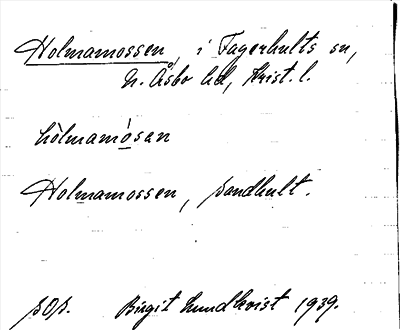 Holmamossen, i Fagerhults sn,
N. Åsbo hd, Krist. l.
hòlmamósan
Holmamossen, sandhult.
sOs. Birgit Lundkvist 1939.